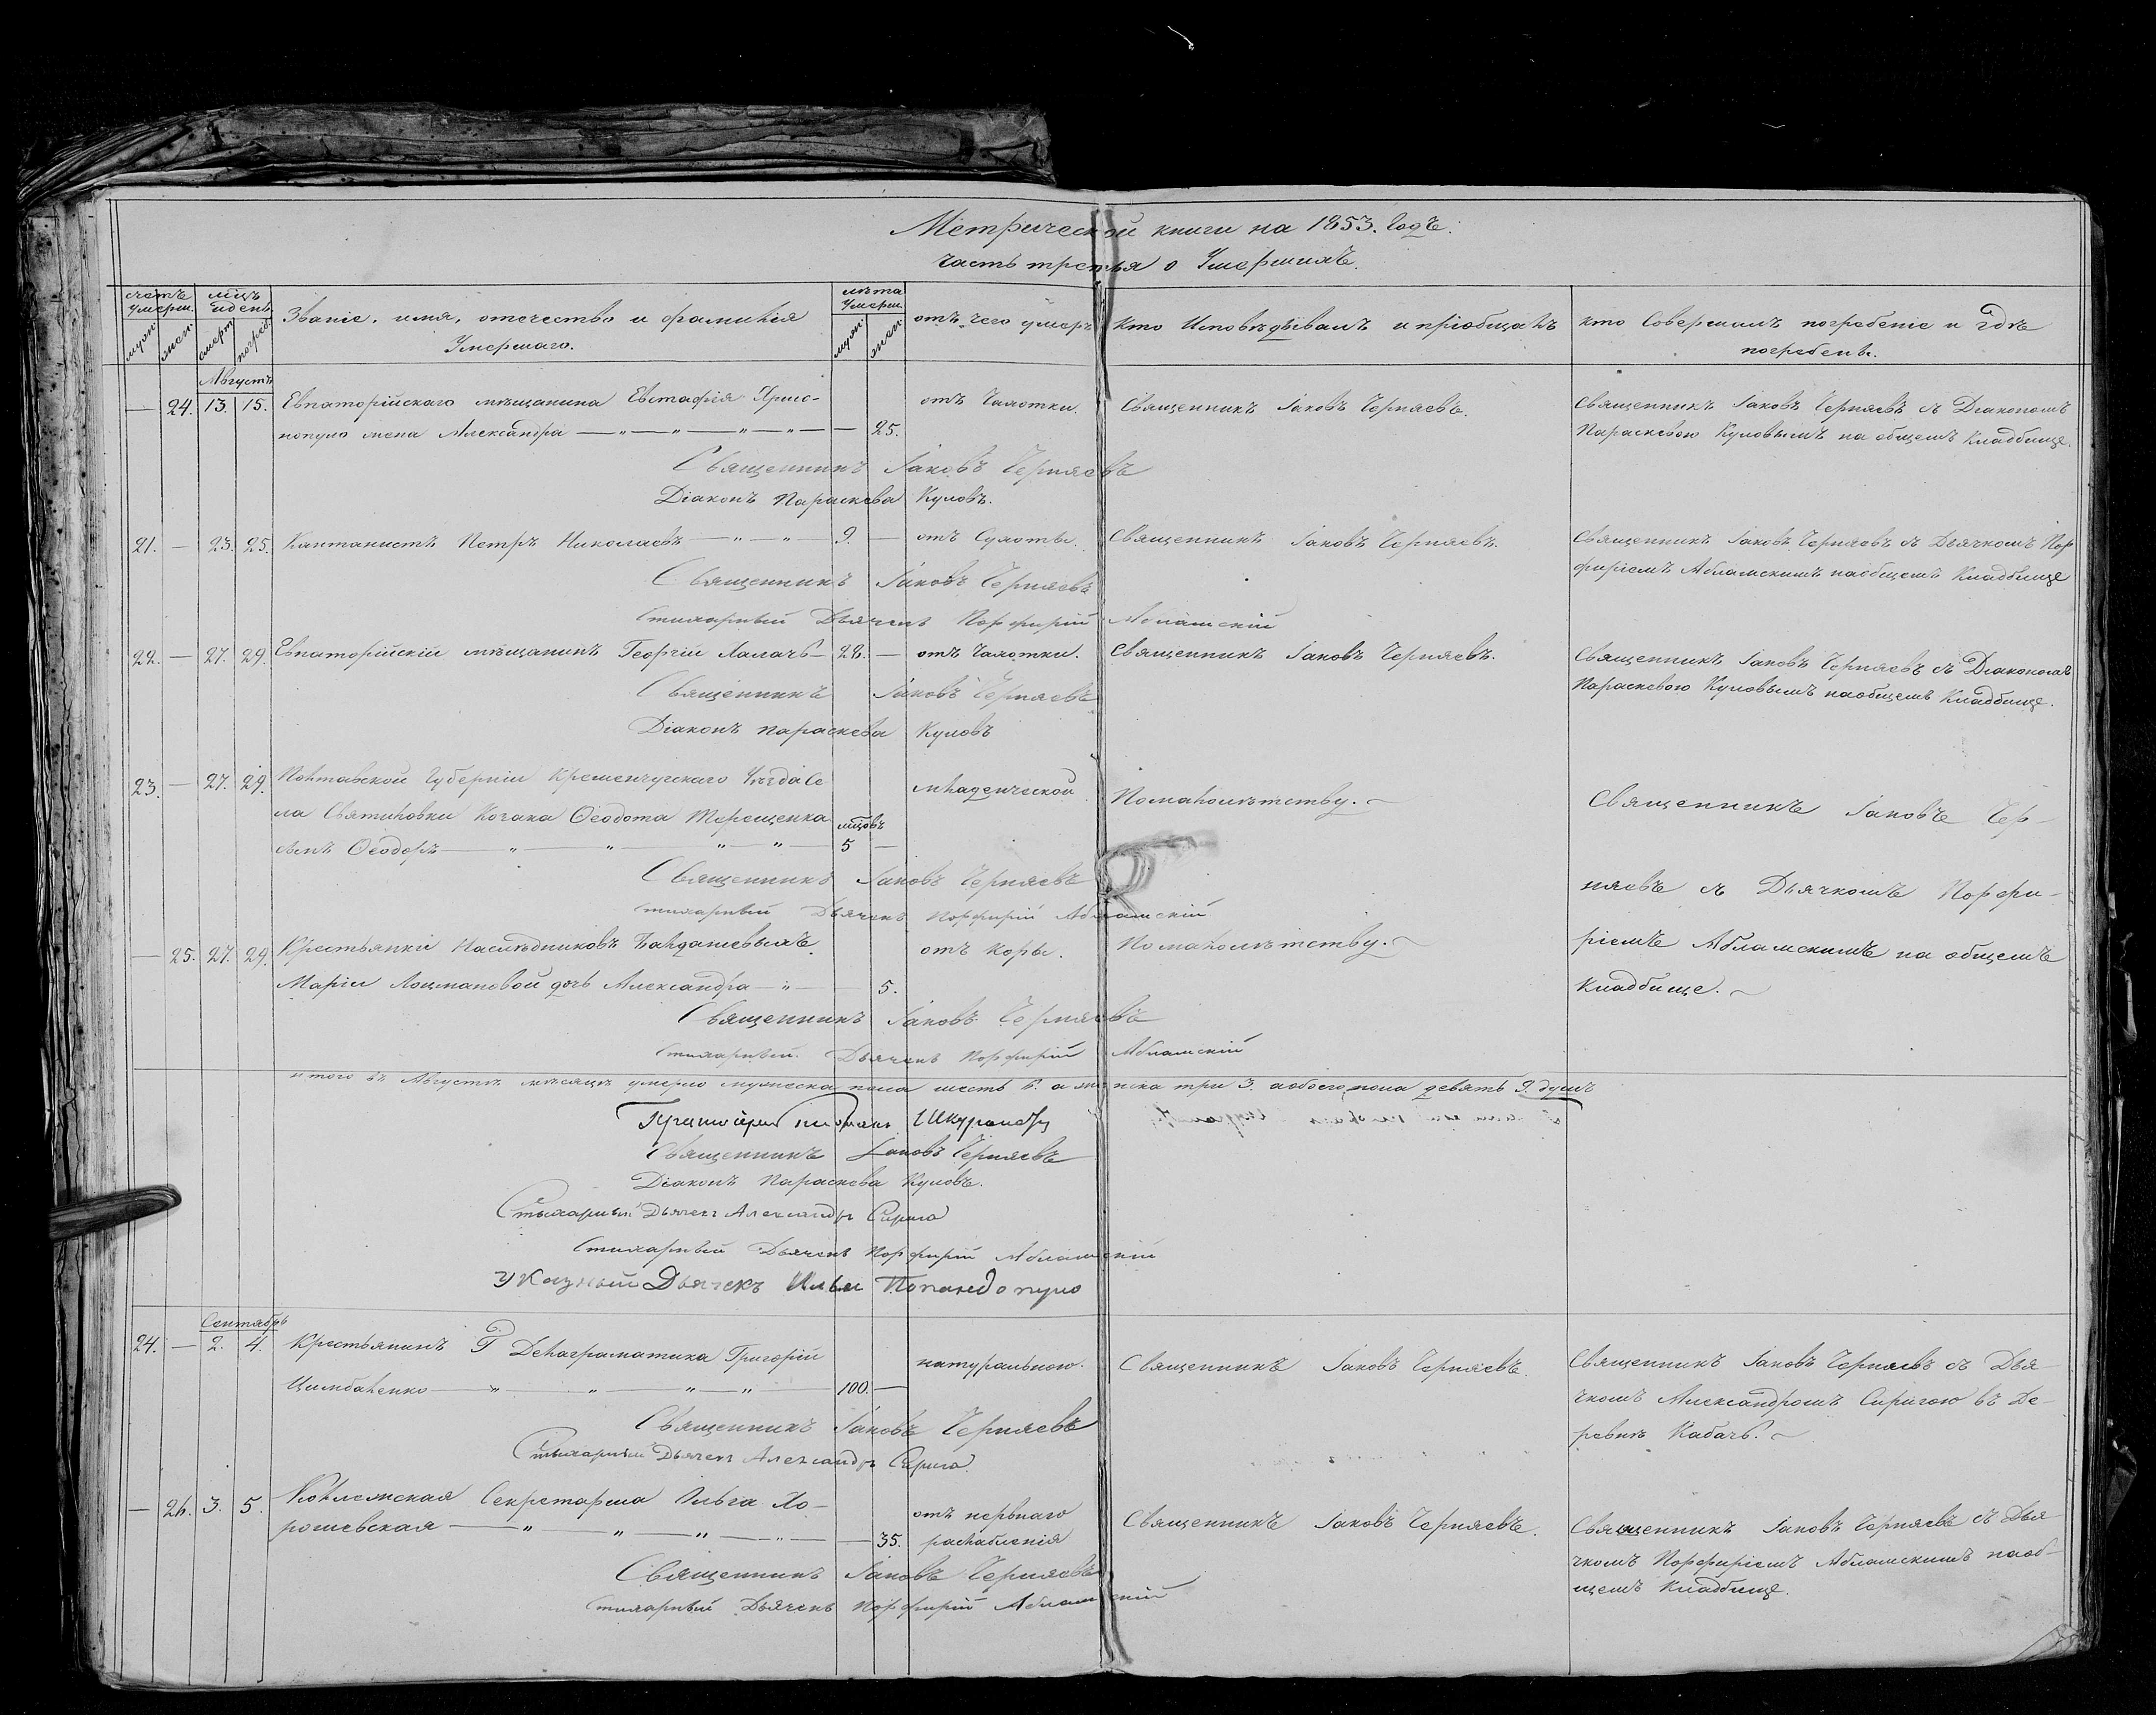 Метрической книги на 1853. годъ.
часть третья о Умершихъ.
счетъ умерш. муж. жен.
мцъ и день смерт. погреб.
Званіе, имя, отчество и фамилія Умершаго.
лѣта Умерш. муж. жен.
отъ чего умеръ
кто Исповѣдывалъ и пріобщалъ
кто Совершалъ погребеніе и гдѣ погребены.
Августъ
— 24. 13. 15. Евпаторійскаго мѣщанина Евстафія Хрис- отъ Чахотки. Священникъ Іаковъ Черняевъ. Священникъ Іаковъ Черняевъ съ Діакономъ
популо жена Александра — 25. Параскевою Куловымъ на общемъ Кладбище.
Священникъ Іаковъ Черняевъ
Діаконъ Параскева Куловъ.
21. — 23. 25. Кантанистъ Петръ Николаевъ 9. — отъ Сухоты. Священникъ Іаковъ Черняевъ. Священникъ Іаковъ Черняевъ съ Дьячкомъ Пор
фиріемъ Абламскимъ наобщемъ Кладбище
Священникъ Іаковъ Черняевъ
Стихарный Дьячекъ Порфирій Абламскій
22. — 27. 29. Евпаторійскій мѣщанинъ Георгій Халачъ 28. — отъ Чахотки. Священникъ Іаковъ Черняевъ. Священникъ Іаковъ Черняевъ съ Діакономъ
Параскевою Куловымъ наобщемъ Кладбище.
Священникъ Іаковъ Черняевъ
Діаконъ Параскева Куловъ
23. — 27. 29. Полтавской Губерніи Кременчугскаго Уѣзда Се младенческой По малолѣтству. Священникъ Іаковъ Чер-
ла Святиловки Козака Ѳеодота Терещенка мцовъ
сынъ Ѳеодоръ 5 —
Священникъ Іаковъ Черняевъ няевъ съ Дьячкомъ Порфи-
Стихарный Дьячекъ Порфирій Абламскій
— 25. 27. 29. Крестьянки Наслѣдниковъ Балдашевыхъ отъ Коры. По малолѣтству. ріемъ Абламскимъ на общемъ
Маріи Лоцмановой дочь Александра 5. Кладбище.
Священникъ Іаковъ Черняевъ
Стихарный Дьячекъ Порфирій Абламскій
итого въ Августѣ мѣсяцѣ умерло мужеска пола шесть 6. а женска три 3. а обоего пола девять 9. душъ
Протоіерей
Священникъ Іаковъ Черняевъ
Діаконъ Параскева Куловъ.
Стыхарный Дьячекъ Александръ Сирига
Стихарный Дьячекъ Порфирій Абламскій
Указный Дьячекъ Илья Попандопуло
Сентябрь
24. — 2. 4. Крестьянинъ Г. Делаграматика Григорій натуральною. Священникъ Іаковъ Черняевъ. Священникъ Іаковъ Черняевъ съ Дья-
Цимбаленко 100. — чкомъ Александромъ Сиригою въ Де-
Священникъ Іаковъ Черняевъ ревнѣ Кабачъ.
Стыхарный Дьячекъ Александръ Сирига.
— 26. 3. 5. Коллежская Секретарша Ольга Хо- отъ нервнаго Священникъ Іаковъ Черняевъ. Священникъ Іаковъ Черняевъ съ Дья
рошевская — 35. разслабленія чкомъ Порфиріемъ Абламскимъ наоб-
Священникъ Іаковъ Черняевъ щемъ Кладбище.
Стихарный Дьячекъ Порфирій Абламскій